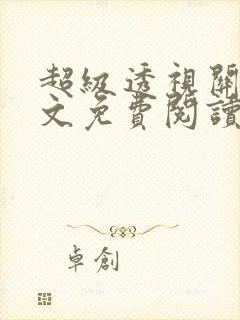 超級透視關
文免費閱讀
卓創